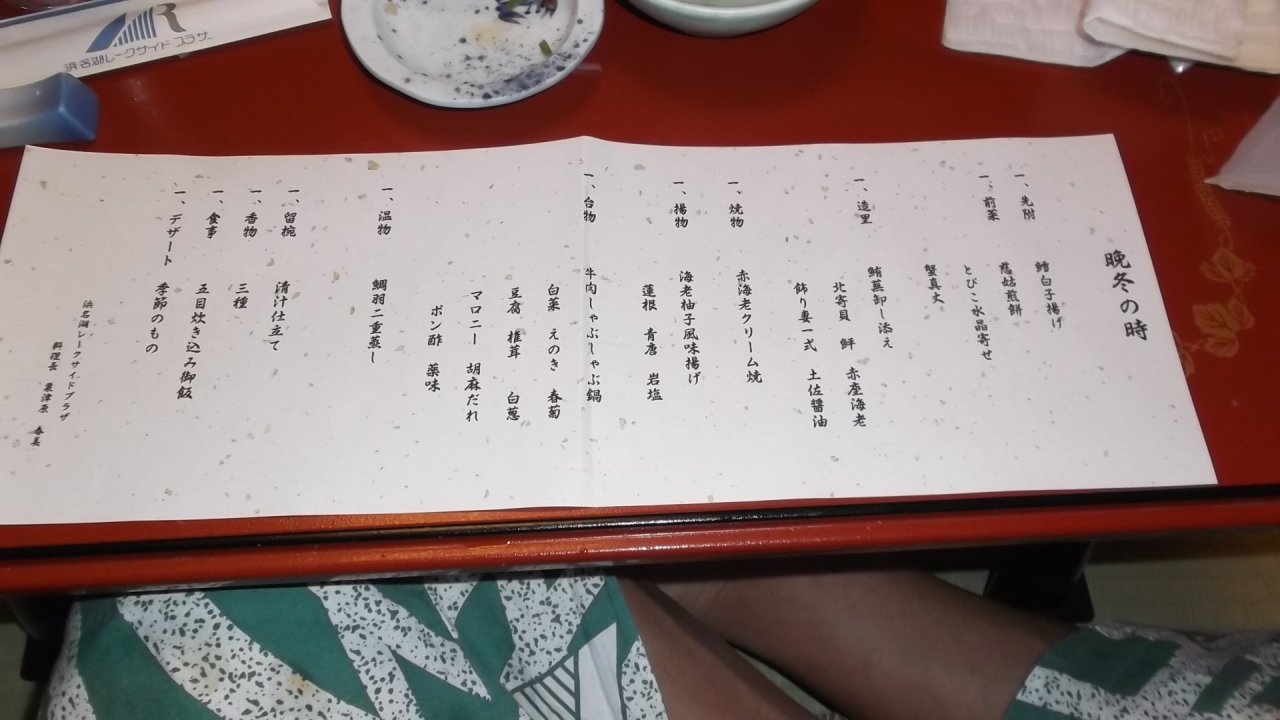 浜名湖レークサイドプラザ
晩冬の時
一、先附 鱈白子揚げ
一、前菜 慈姑煎餅
とびこ水晶寄せ
蟹真丈
一、造里 鮪蕪卸し添え
北寄貝 鮃 赤座海老
飾り妻一式 土佐醤油
一、焼物 赤海老クリーム焼
一、揚物 海老柚子風味揚げ
蓮根 青唐 岩塩
一、台物 牛肉しゃぶしゃぶ鍋
白菜 えのき 春菊
豆腐 椎茸 白葱
マロニー 胡麻だれ
ポン酢 薬味
一、温物 鯛羽二重蒸し
一、留椀 清汁仕立て
一、香物 三種
一、食事 五目炊き込み御飯
一、デザート 季節のもの
浜名湖レークサイドプラザ
料理長 粟津原 春美